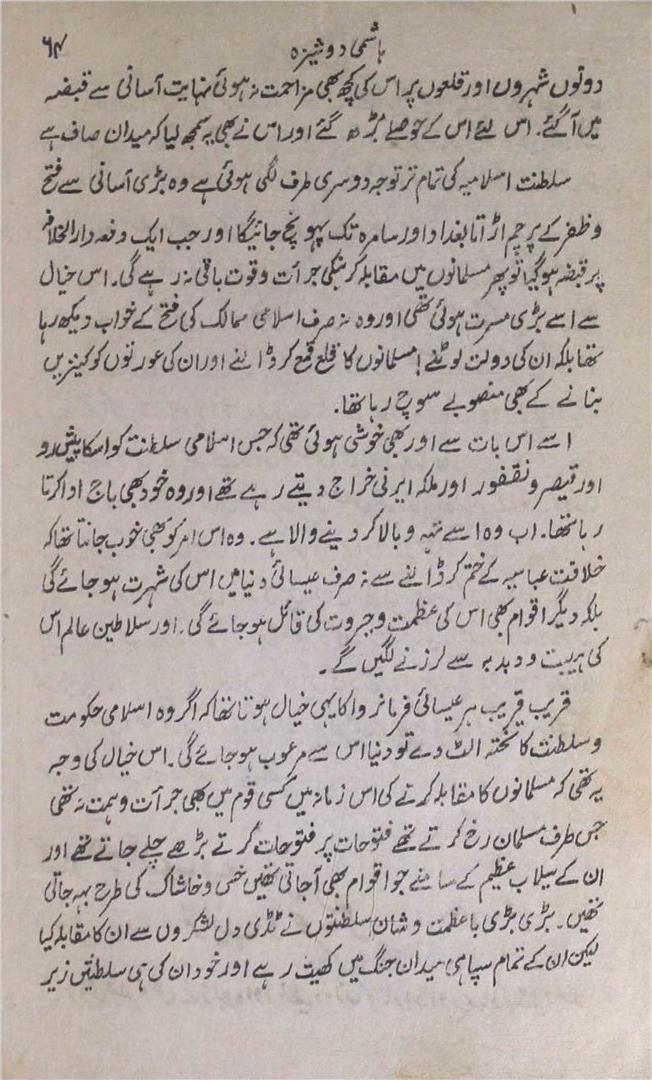 ہاشمی دوشیزہ ۶۴
دونوں شہروں اور قلعوں پر اس کی کچھ بھی مزاحمت نہ ہوئی نہایت آسانی سے قبضہ
میں آگئے۔ اس لئے اس کے حوصلے بڑھ گئے اور اس نے بھی یہ سمجھ لیا کہ میدان صاف ہے
سلطنت اسلامیہ کی تمام تر توجہ دوسری طرف لگی ہوئی ہے وہ بڑی آسانی سے فتح
و ظفر کے پرچم اڑاتا بغداد اور سامرہ تک پہونچ جائیگا اور جب ایک دفعہ دارالخلافہ
پر قبضہ ہو گیا تو پھر مسلمانوں میں مقابلہ کرنیکی جرأت و قوت باقی نہ رہے گی۔ اس خیال
سے اسے بڑی مسرت ہوئی تھی اور وہ نہ صرف اسلامی ممالک کی فتح کے خواب دیکھ رہا
تھا بلکہ ان کی دولت لوٹنے مسلمانوں کا قلع قمع کر ڈالنے اور ان کی عورتوں کو کنیزیں
بنانے کے بھی منصوبے سوچ رہا تھا۔
اسے اس بات سے اور بھی خوشی ہوئی تھی کہ جس اسلامی سلطنت کو اسکا پیش رو
اور قیصر و نقفور اور ملکہ ایرنی خراج دیتے رہے تھے اور وہ خود بھی باج ادا کرتا
رہا تھا۔ اب وہ اسے تہہ و بالا کر دینے والا ہے۔ وہ اس امر کو بھی خوب جانتا تھا کہ
خلافت عباسیہ کے ختم کر ڈالنے سے نہ صرف عیسائی دنیا میں اس کی شہرت ہو جائے گی
بلکہ دیگر اقوام بھی اس کی عظمت و جروت کی قائل ہو جائے گی۔ اور سلاطین عالم اس
کی ہیبت و دبدبہ سے لرزنے لگیں گے۔
قریب قریب ہر عیسائی فرمانروا کا یہی خیال ہوتا تھا کہ اگر وہ اسلامی حکومت
و سلطنت کا تختہ الٹ دے تو دنیا اس سے مرعوب ہو جائے گی۔ اس خیال کی وجہ
یہ تھی کہ مسلمانوں کا مقابلہ کرنے کی اس زمانہ میں کسی قوم میں بھی جرأت و ہمت نہ تھی
جس طرف مسلمان رخ کرتے تھے فتوحات پر فتوحات کرتے بڑھے چلے جاتے تھے اور
ان کے سیلاب عظیم کے سامنے جو اقوام بھی آجاتی تھیں خس و خاشاک کی طرح بہہ جاتی
تھیں۔ بڑی بڑی با عظمت و شان سلطنتوں نے ٹڈی دل لشکروں سے ان کا مقابلہ کیا
لیکن ان کے تمام سپاہی میدان جنگ میں کھیت رہے اور خود ان کی ہی سلطنتیں زیر